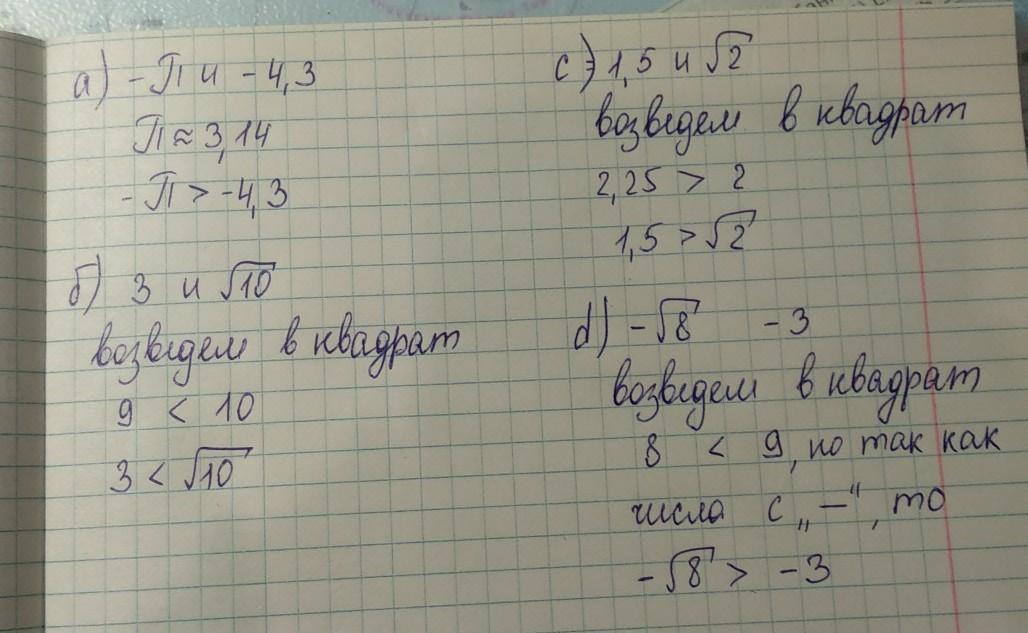 а) -П и -4,3
П ≈ 3,14
-П > -4,3
б) 3 и √10
возведем в квадрат
9 < 10
3 < √10
с) 1,5 и √2
возведем в квадрат
2,25 > 2
1,5 > √2
d) -√8 -3
возведем в квадрат
8 < 9, но так как
числа с „—“, то
-√8 > -3